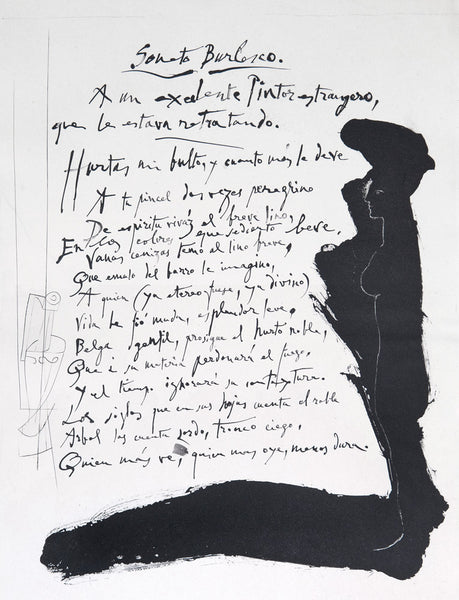 Soneto Burlesco.
A un excelente Pintor estrangero,
que le estava retratando.
Hurtas mi bulto, y cuanto más le deve
A tu pincel dos vezes peregrino
De espiritu vivaz el breve lino,
En los colores que sediento beve,
Vanas cenizas temo al lino breve,
Que emulo del barro le imagino,
A quien (ya etereo fuese, ya divino)
Vida le fió muda, esplendor leve,
Belga gentil, prosigue al hurto noble,
Que a su materia perdonará el fuego,
Y el tiempo ignorará su contextura.
Los siglos que en sus hojas cuenta el roble
Arbol los cuenta sordo, tronco ciego,
Quien más ve, quien mas oye, menos dura.